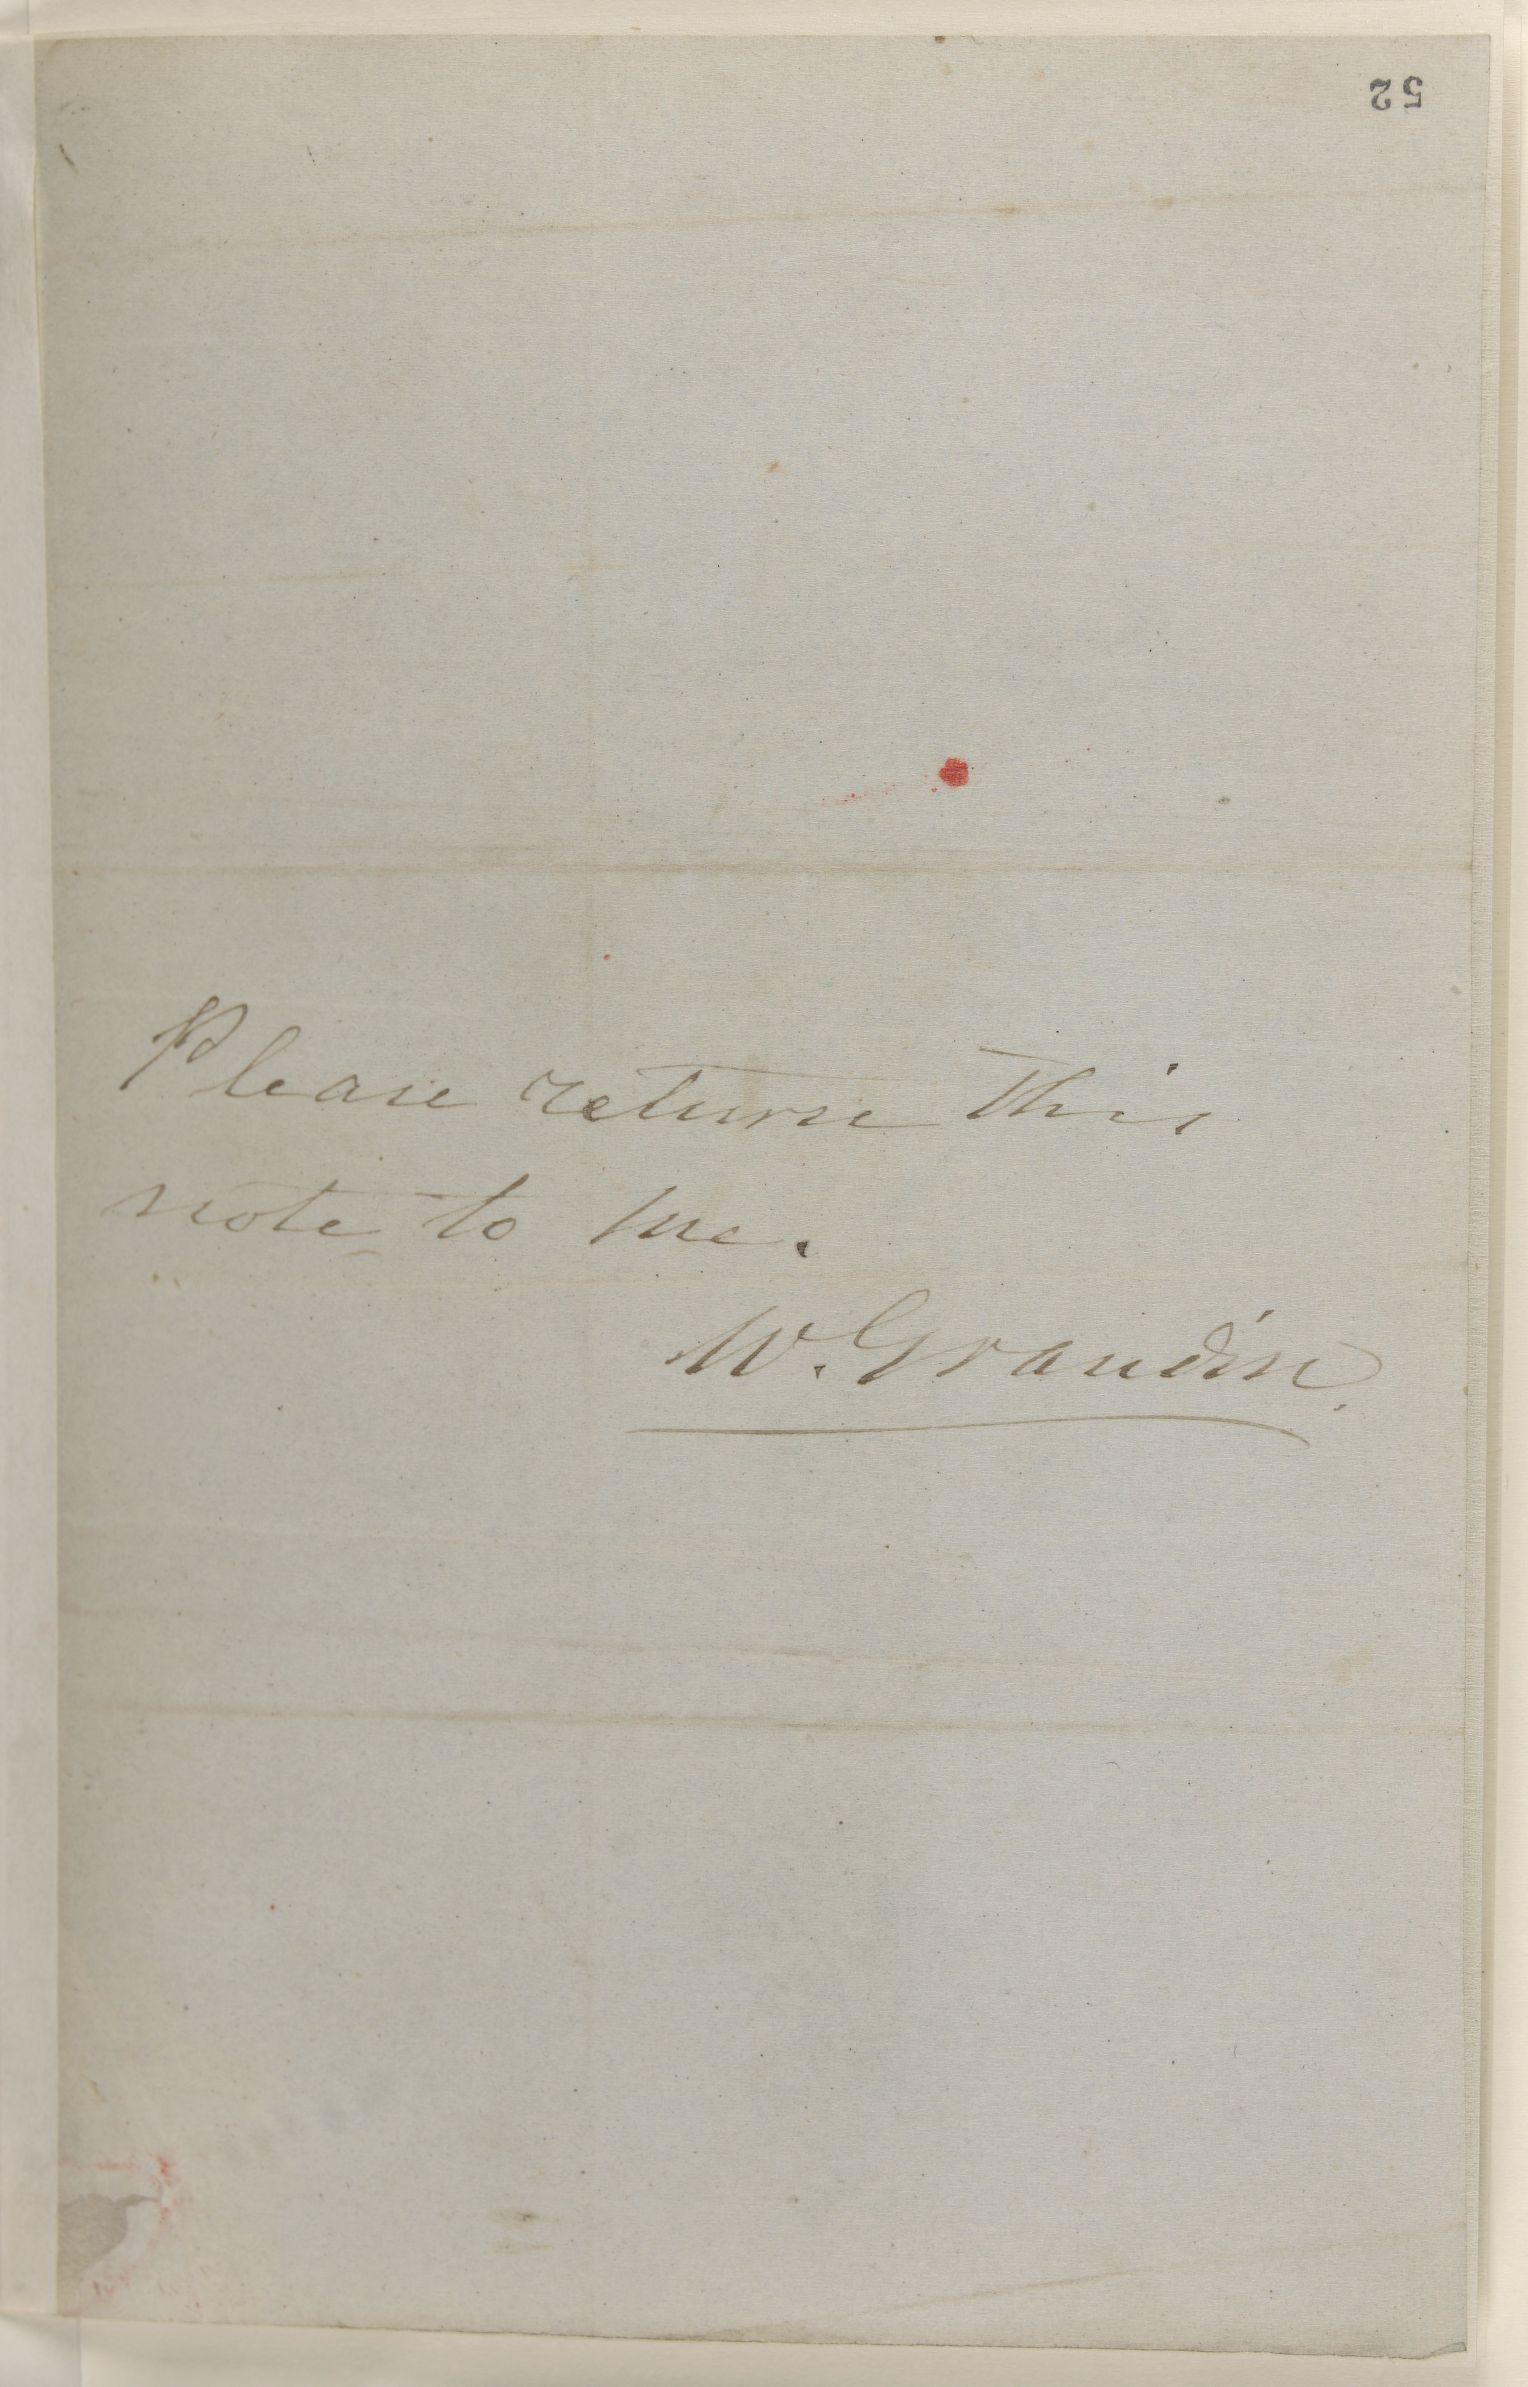 52
Please return this
note to me.
W. Grandin